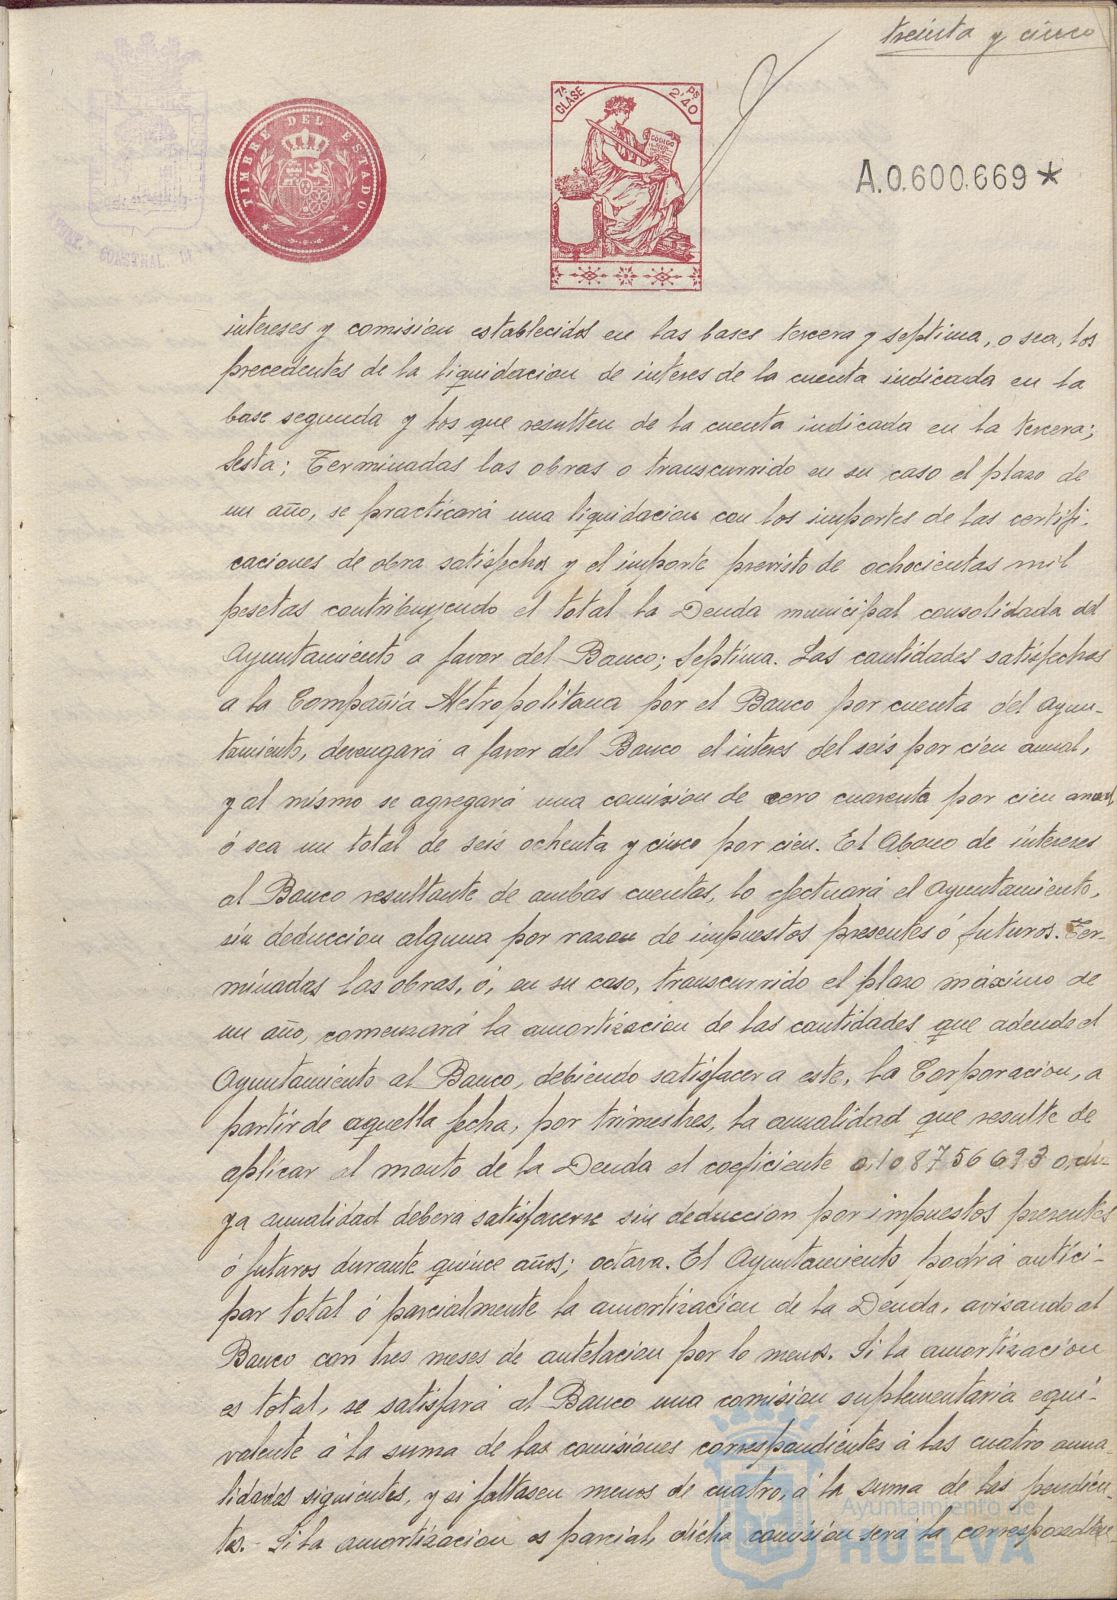 treinta y cinco
TIMBRE DEL ESTADO
7ª CLASE
Ps 2'40
CODIGO
A.0.600.669*
intereses y comision establecidos en las bases tercera y septima, o sea, los
precedentes de la liquidacion de interes de la cuenta indicada en la
base segunda y los que resulten de la cuenta indicada en la tercera;
Sesta; Terminadas las obras o transcurrido en su caso el plazo de
un año, se practicará una liquidacion con los importes de las certifi-
caciones de obra satisfechos y el importe previsto de ochocientas mil
pesetas contribuyendo el total la Deuda municipal consolidada del
Ayuntamiento a favor del Banco; Septima. Las cantidades satisfechas
a la Compañía Metropolitana por el Banco por cuenta del Ayun-
tamiento, devengará a favor del Banco el interes del seis por cien anual,
y al mismo se agregará una comision de cero cuarenta por cien anual,
ó sea un total de seis ochenta y cinco por cien. El Abono de intereses
al Banco resultante de ambas cuentas, lo efectuará el Ayuntamiento,
sin deduccion alguna por razon de impuestos presentes ó futuros. Ter-
minadas las obras, ó, en su caso, transcurrido el plazo máximo de
un año, comenzará la amortizacion de las cantidades que adeude el
Ayuntamiento al Banco, debiendo satisfacer a este, la Corporacion, a
partir de aquella fecha, por trimestres, la anualidad que resulte de
aplicar al monto de la Deuda el coeficiente 0,108756693 0, cu-
ya anualidad debera satisfacerse sin deduccion por impuestos presentes
ó futuros durante quince años; octava. El Ayuntamiento podrá antici-
par total ó parcialmente la amortizacion de la Deuda, avisando al
Banco con tres meses de antelacion por lo menos. Si la amortizacion
es total, se satisfará al Banco una comision suplementaria equi-
valente á la suma de las comisiones correspondientes á las cuatro anua-
lidades siguientes, y si faltasen menos de cuatro, á la suma de las pendien-
tes.- Si la amortizacion es parcial, dicha comision será la correspondien-
Ayuntamiento de
HUELVA